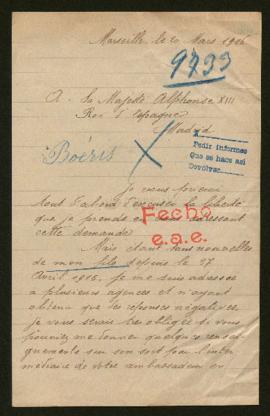 Marseille le 20 Mars 1916
9733
A Sa Majesté Alphonse XIII
Roi d'Espagne
Madrid
Pedir informes
Que se hace asi
Devolver
Boéris
Je vous prierai
tout d'abord d'excuser la liberté
que je prends en vous adressant
cette demande
Fecho
e.a.e.
Mais étant sans nouvelles
de mon fils depuis le 27
Avril 1915, je me suis adressé
à plusieurs agences et n'ayant
obtenu que des réponses négatives
je vous serais très obligé si vous
pouviez me donner quelques rensei
gnements sur son sort par l'inter
médiaire de votre ambassadeur en